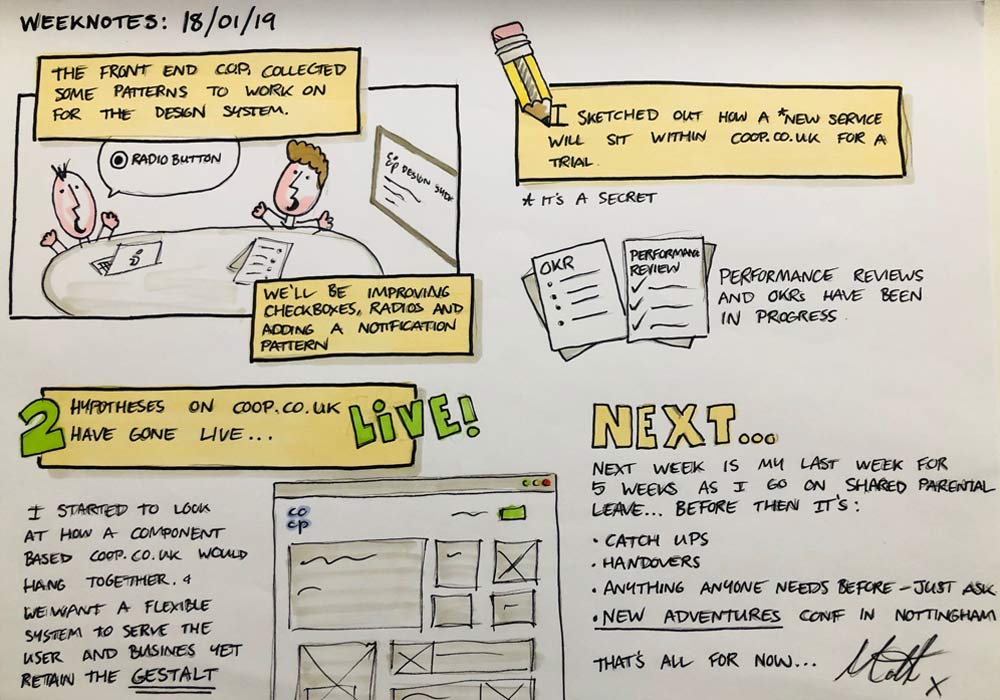 WEEKNOTES: 18/01/19
THE FRONT END C.O.P. COLLECTED
SOME PATTERNS TO WORK ON
FOR THE DESIGN SYSTEM.
RADIO BUTTON
DESIGN
WE'LL BE IMPROVING
CHECKBOXES, RADIOS AND
ADDING A NOTIFICATION
PATTERN
I SKETCHED OUT HOW A *NEW SERVICE
WILL SIT WITHIN COOP.CO.UK FOR A
TRIAL.
* IT'S A SECRET
OKR
PERFORMANCE
REVIEW
PERFORMANCE REVIEWS
AND OKRs HAVE BEEN
IN PROGRESS.
2 HYPOTHESES ON COOP.CO.UK
HAVE GONE LIVE...
LIVE!
I STARTED TO LOOK
AT HOW A COMPONENT
BASED COOP.CO.UK WOULD
HANG TOGETHER.
WE WANT A FLEXIBLE
SYSTEM TO SERVE THE
USER AND BUSINES YET
RETAIN THE GESTALT
co
op
NEXT...
NEXT WEEK IS MY LAST WEEK FOR
5 WEEKS AS I GO ON SHARED PARENTAL
LEAVE... BEFORE THEN IT'S:
• CATCH UPS
• HANDOVERS
• ANYTHING ANYONE NEEDS BEFORE - JUST ASK
• NEW ADVENTURES CONF IN NOTTINGHAM
THAT'S ALL FOR NOW...
Matt x